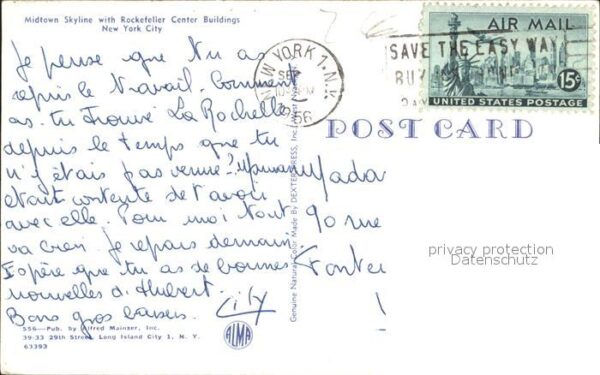 Midtown Skyline with Rockefeller Center Buildings
New York City
Je pense que tu as
repris le travail. Comment
as-tu trouvé La Rochelle
depuis le temps que tu
n'y étais pas venue? Maman
était contente de t'avoir
avec elle. Pour moi tout
va bien. Je repars demain
J'espère que tu as de bonnes
nouvelles d'Hubert.
Bons gros baisers. City
556—Pub. by Alfred Mainzer, Inc.
39-33 29th Street, Long Island City 1, N. Y.
63393
ALMA
Genuine Natural Color Made By DEXTER PRESS, INC.
NEW YORK 1. N.Y.
SEP
1956
SAVE THE EASY WAY
BUY
AIR MAIL
15¢
UNITED STATES POSTAGE
POST CARD
Mada
90 rue
Fonte
privacy protection
Datenschutz